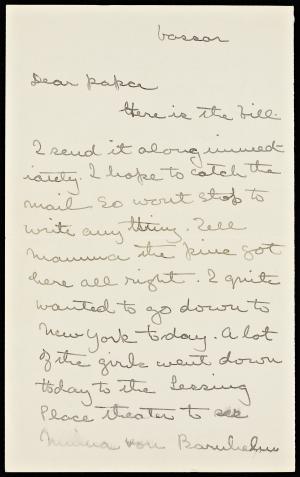 Vassar
Dear papa
Here is the bill.
I send it along immed-
iately. I hope to catch the
mail so wont stop to
write any thing. Tell
mamma the pins got
here all right. I quite
wanted to go down to
New York today. A lot
of the girls went down
today to the Irving
Place theater to see
Minna von Barnhelm